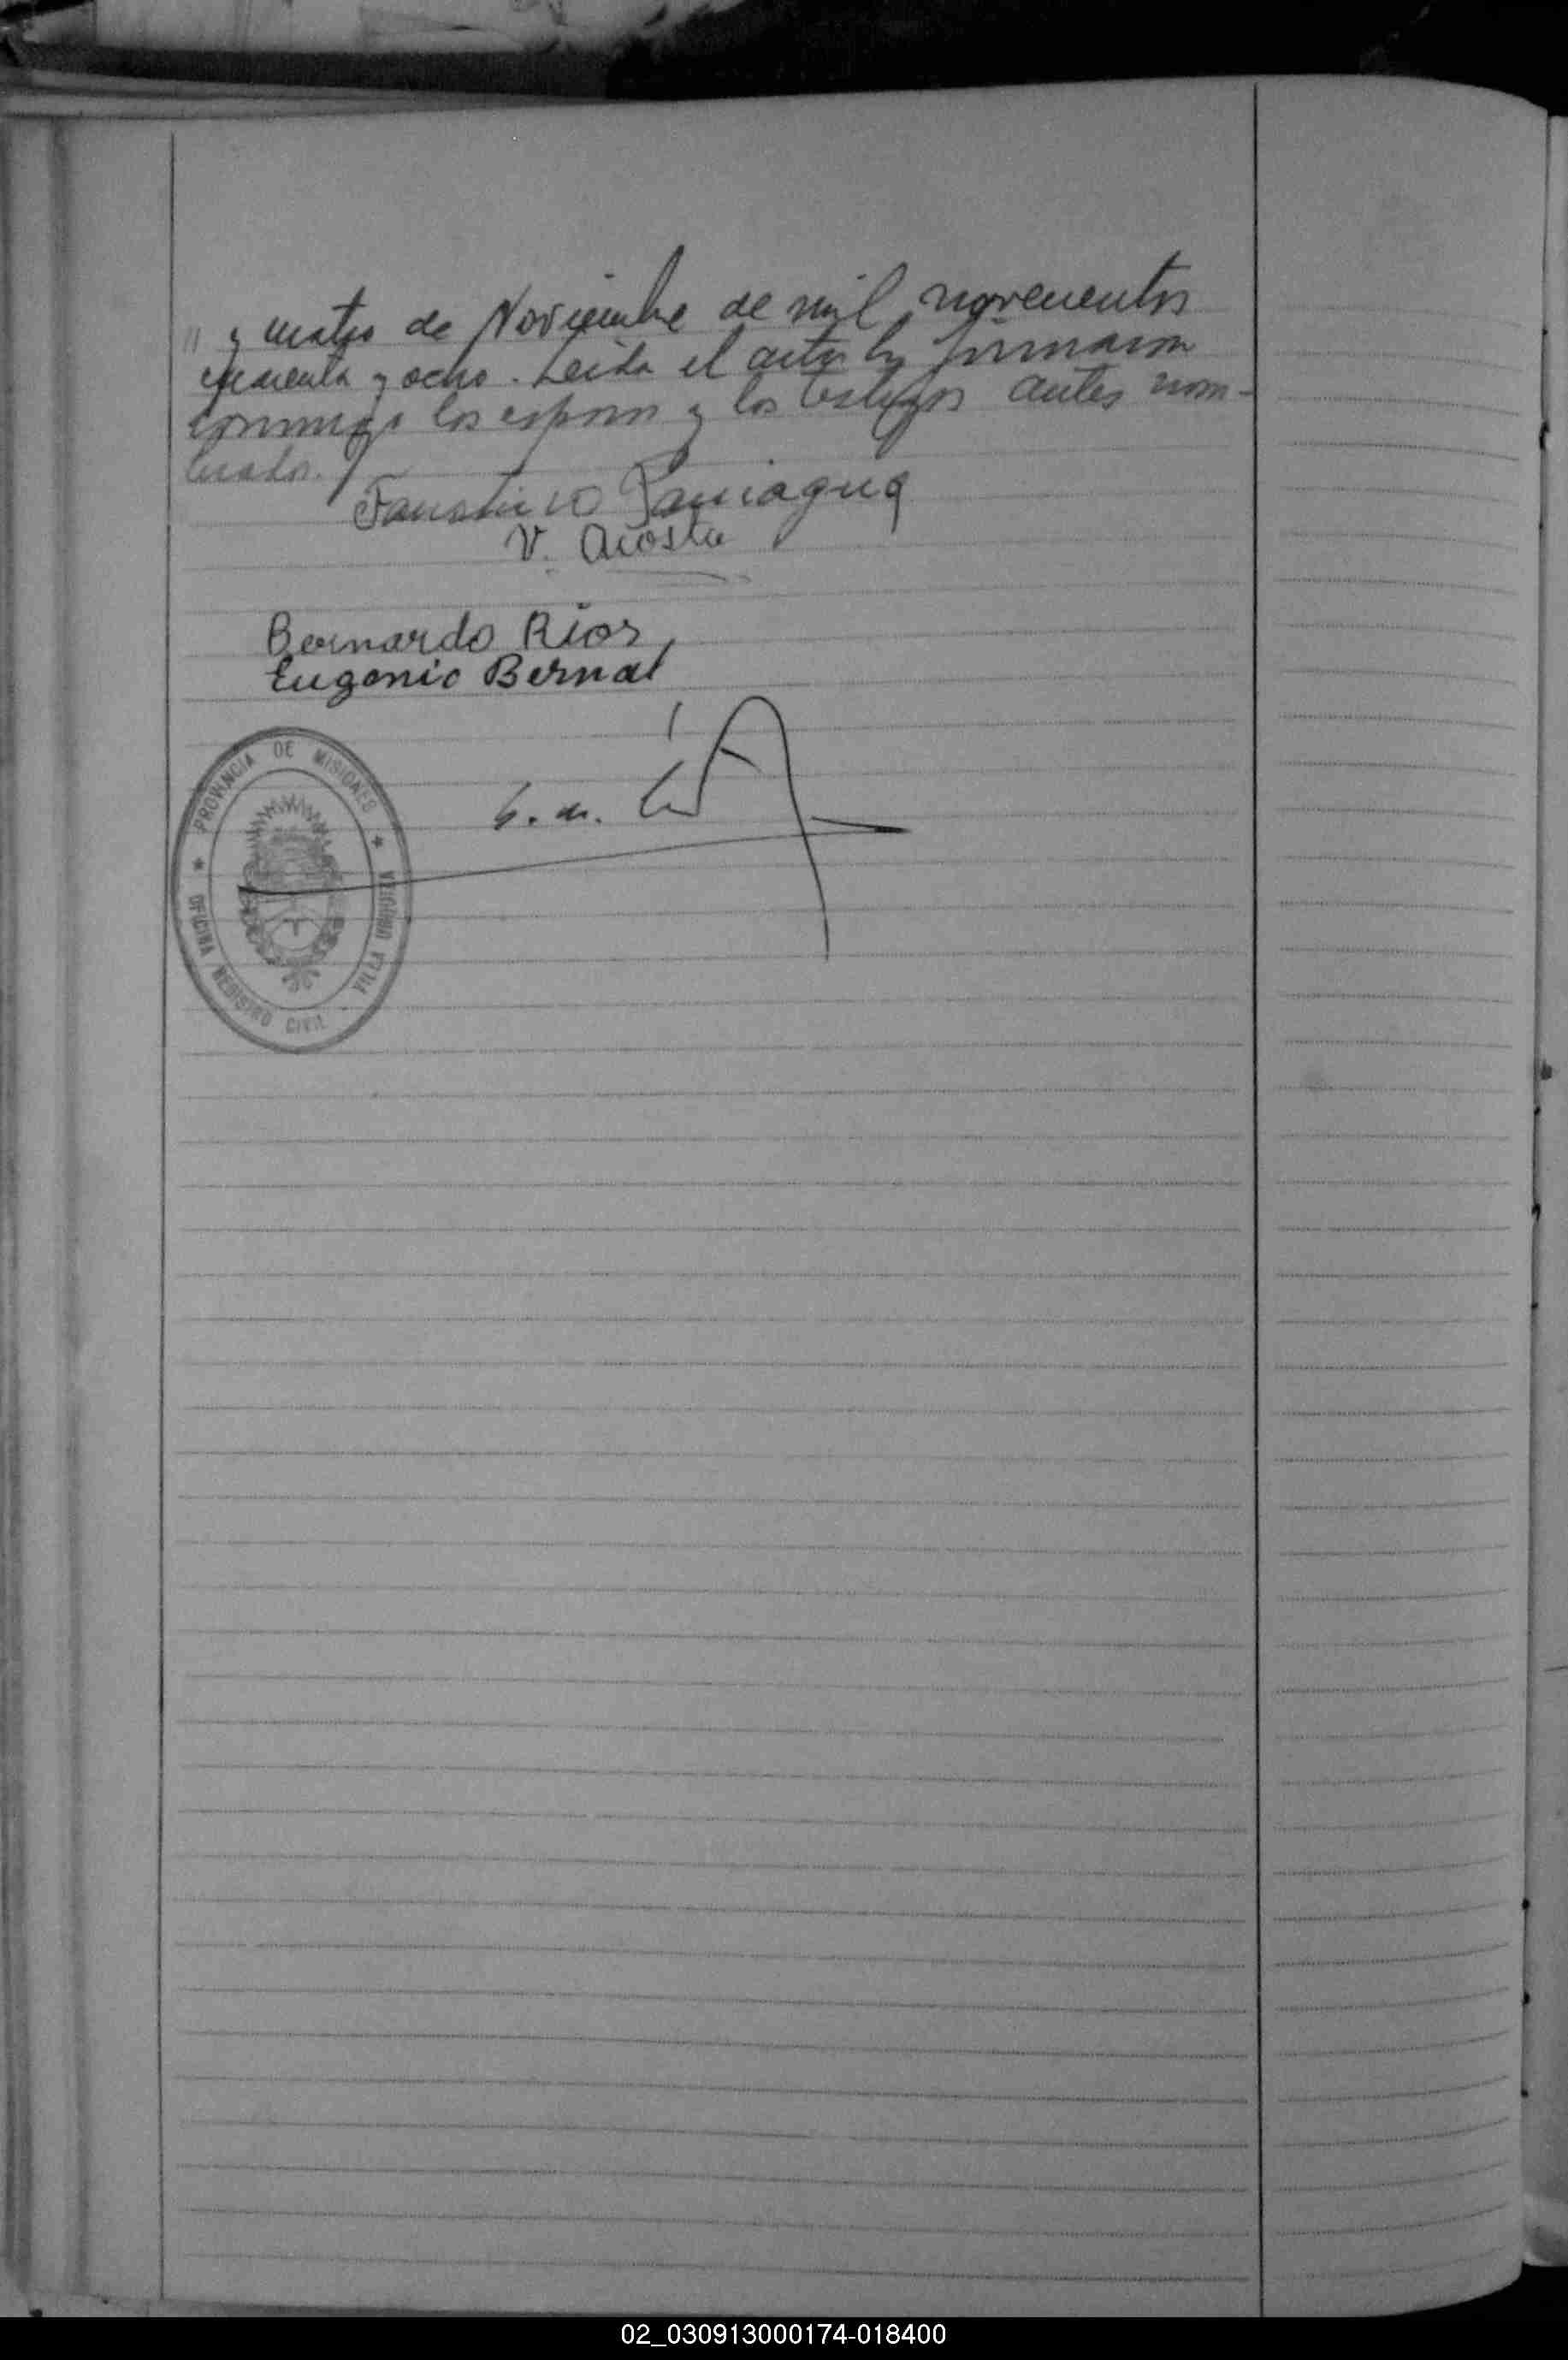 " y cuatro de Noviembre de mil novecientos
cincuenta y ocho. Leída el acta la firmaron
conmigo los esposos y los testigos antes nom-
brados.
Faustino Paniagua
V. Acosta
Bernardo Ríos
Eugenio Bernal
PROVINCIA DE MISIONES
OFICINA REGISTRO CIVIL
VILLA URQUIZA
02_030913000174-018400